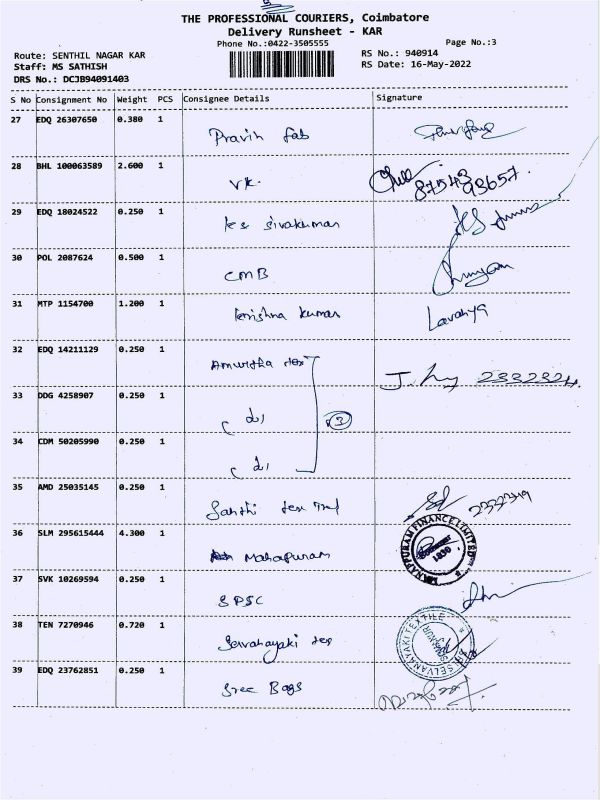 THE PROFESSIONAL COURIERS, Coimbatore
Delivery Runsheet - KAR
Phone No.:0422-3505555
Page No.:3
Route: SENTHIL NAGAR KAR
RS No.: 940914
Staff: MS SATHISH
RS Date: 16-May-2022
DRS No.: DCJB94091403
S No Consignment No Weight PCS Consignee Details Signature
27 EDQ 26307650 0.380 1
Pravin fab
28 BHL 100063589 2.600 1
VK.
29 EDQ 18024522 0.250 1
ks sivakumar
30 POL 2087624 0.500 1
CMB
31 MTP 1154700 1.200 1
krishna kumar Lavanya
32 EDQ 14211129 0.250 1
Amurtha tex
2332324
33 DDG 4258907 0.250 1
3
34 CDM 50205990 0.250 1
35 AMD 25035145 0.250 1
Santhi tex
36 SLM 295615444 4.300 1
Mahapuram
MANAPPURAM FINANCE LIMITED
1830
37 SVK 10269594 0.250 1
SPSC
38 TEN 7270946 0.720 1
Selvanayaki tex
SELVANAYAKI TEXTILE
39 EDQ 23762851 0.250 1
Sree Bags